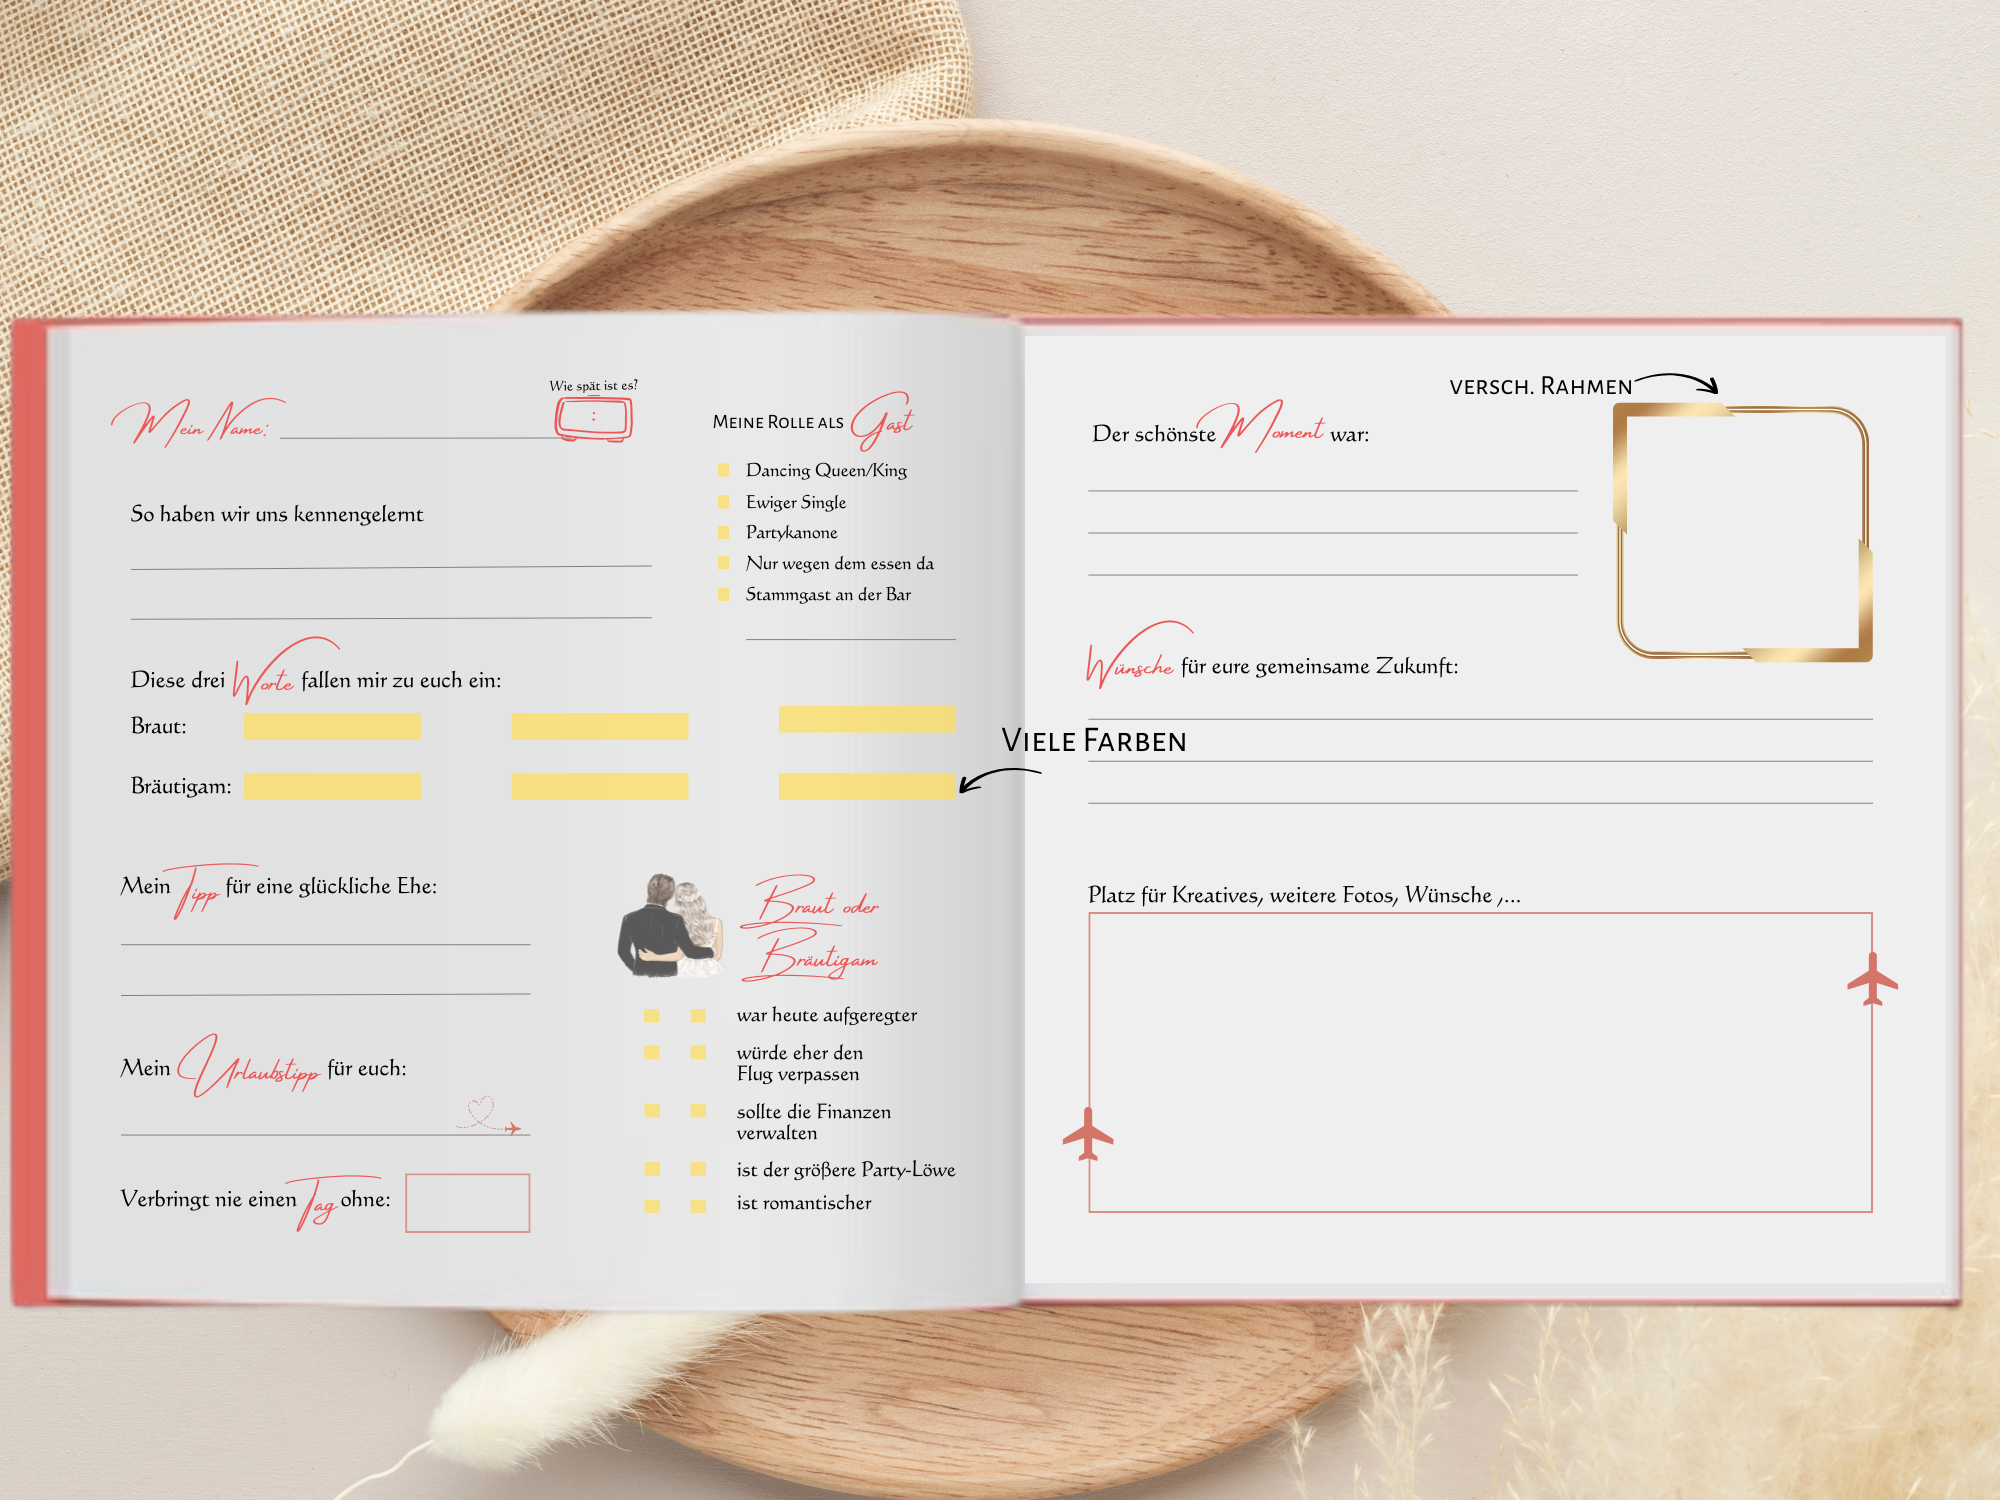 Mein Name:
Wie spät ist es?
:
So haben wir uns kennengelernt
MEINE ROLLE ALS Gast
Dancing Queen/King
Ewiger Single
Partykanone
Nur wegen dem essen da
Stammgast an der Bar
Diese drei Worte fallen mir zu euch ein:
Braut:
Bräutigam:
VIELE FARBEN
Mein Tipp für eine glückliche Ehe:
Mein Urlaubstipp für euch:
Verbringt nie einen Tag ohne:
Braut oder
Bräutigam
war heute aufgeregter
würde eher den
Flug verpassen
sollte die Finanzen
verwalten
ist der größere Party-Löwe
ist romantischer
VERSCH. RAHMEN
Der schönste Moment war:
Wünsche für eure gemeinsame Zukunft:
Platz für Kreatives, weitere Fotos, Wünsche ,...